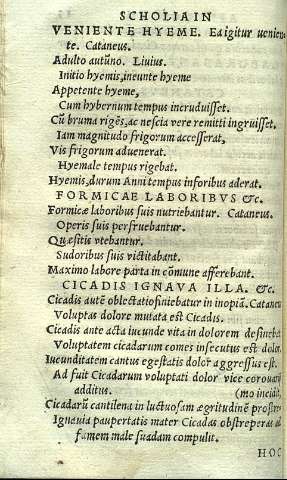 SCHOLIA IN
VENIENTE HYEME. Ea igitur venien-
te. Cataneus.
Adulto autūno. Liuius.
Initio hyemis, ineunte hyeme
Appetente hyeme,
Cum hybernum tempus incruduisset.
Cū bruma rigēs, ac nescia vere remitti ingruisset.
Iam magnitudo frigorum accesserat,
Vis frigorum aduenerat.
Hyemale tempus rigebat.
Hyemis, durum Anni tempus inforibus aderat.
FORMICAE LABORIBVS &c.
Formicæ laboribus suis nutriebantur. Cataneus.
Operis suis perfruebantur.
Quæsitis vtebantur.
Sudoribus suis victitabant.
Maximo labore parta in cōmune afferebant.
CICADIS IGNAVA ILLA. &c.
Cicadis autē oblectatio finiebatur in inopiā. Cataneu
Voluptas dolore mutata est Cicadis.
Cicadis ante acta iucunde vita in dolorem desinebat
Voluptatem cicadarum comes insecutus est dolor.
Iucunditatem cantus egestatis dolor aggressus est.
Ad fuit Cicadarum voluptati dolor vice coronarii
additus. (mo incidit,
Cicadarū cantilena in luctuosam ægritudinē
Ignauia paupertatis mater Cicadas obstreperas ad
famem male suadam compulit.
HOC